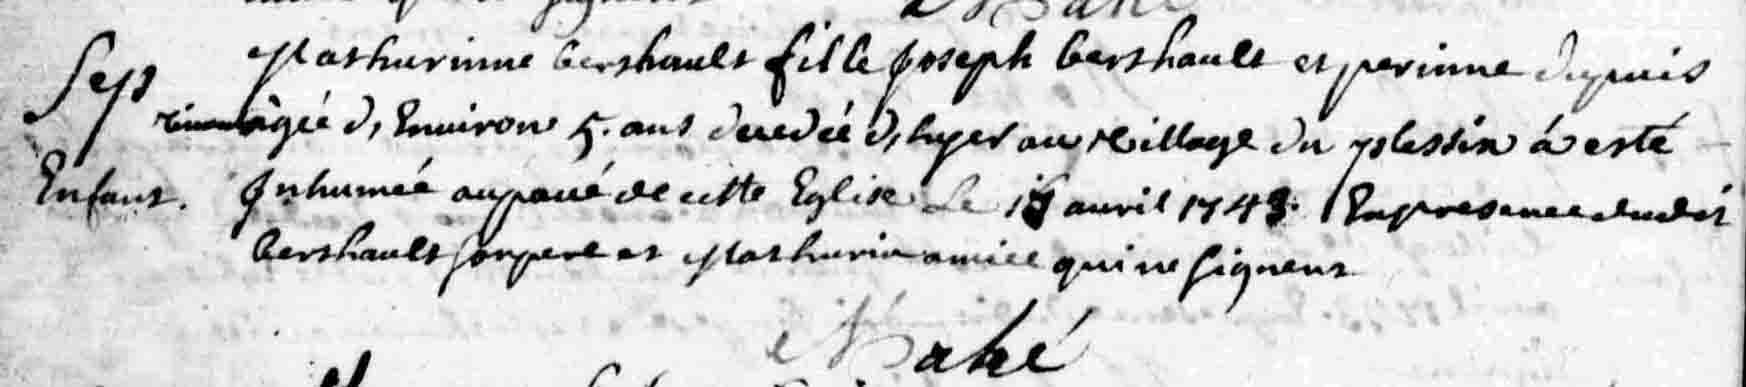 Mahé
Mathurinne bershault fille Joseph bershault et perinne dupuis
Sep
âgéé d, Environ 5. ans decedéé d, hyer au Village du plessix á esté
Enfant. Inhuméé au pavé de cette Eglise Le avril 1743. En presence dudit
bershault son pere et Mathurin amice qui ne signent
Mahé